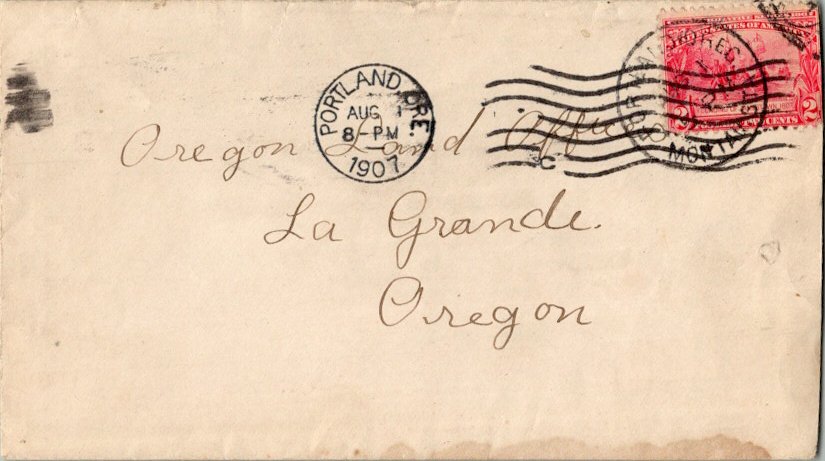 PORTLAND, ORE.
AUG
8-PM
1907
C
UNITED STATES OF AMERICA
2 2
CENTS
Oregon Land Office
La Grande.
Oregon